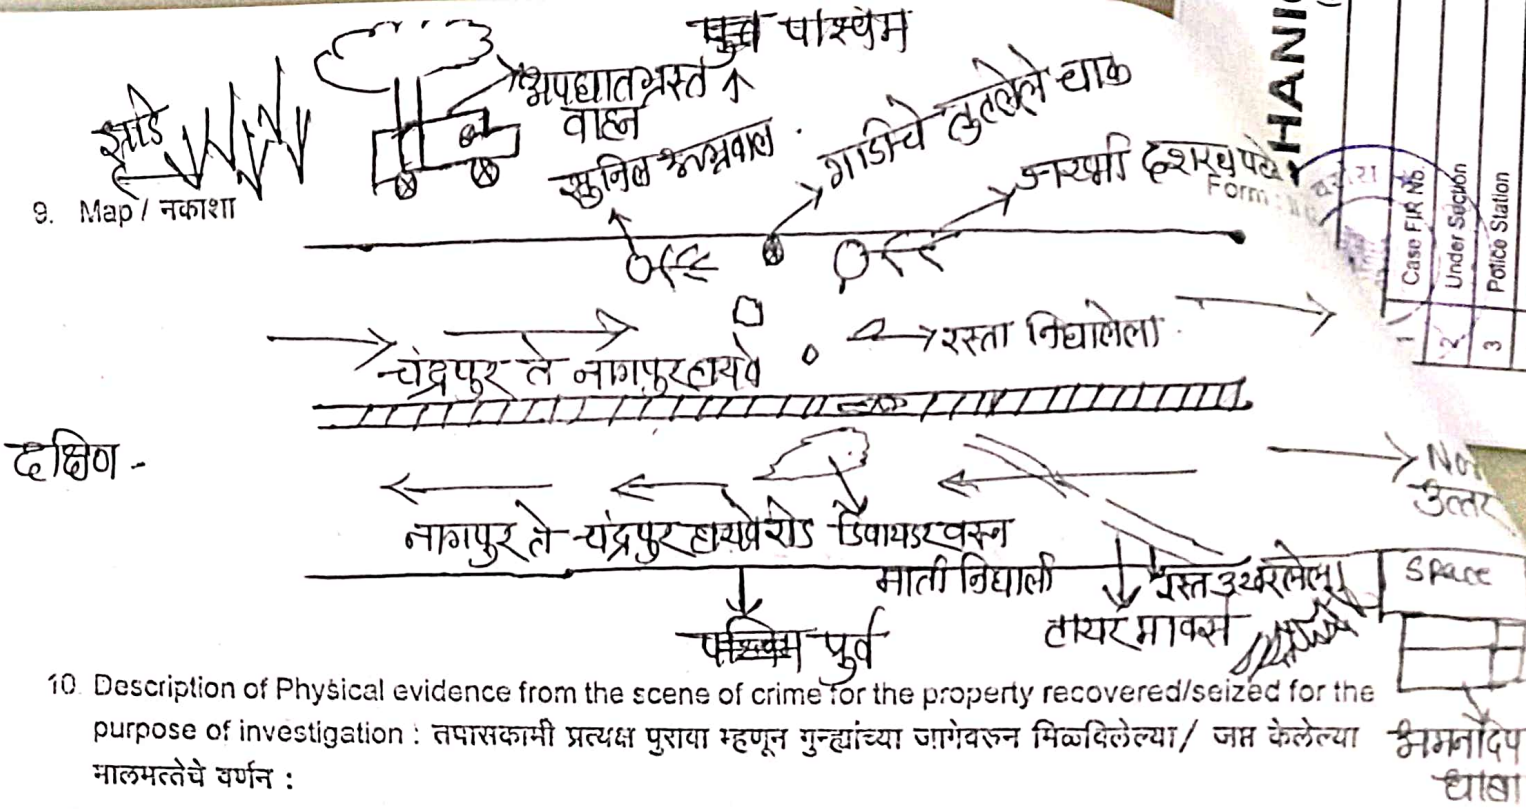 पश्चिम
अपघातग्रस्त
वाहन
झाडे
सुनिल अग्रवाल
गाडीचे तुटलेले चाक
जख्मी दशरथ
Form
9. Map / नकाशा
रस्ता निघालेला
चंद्रपुर ते नागपुर हायवे
दक्षिण -
उत्तर
नागपुर ते चंद्रपुर हायवे रोड
डिवायडर वरून
माती निघाली
टायर मार्क्स
Space
पुर्व
10. Description of Physical evidence from the scene of crime for the property recovered/seized for the
purpose of investigation : तपासकामी प्रत्यक्ष पुरावा म्हणून गुन्ह्यांच्या जागेवरुन मिळविलेल्या/ जप्त केलेल्या
मालमत्तेचे वर्णन :
धाबा
HANI
1 Case FIR No.
2 Under Section
3 Police Station